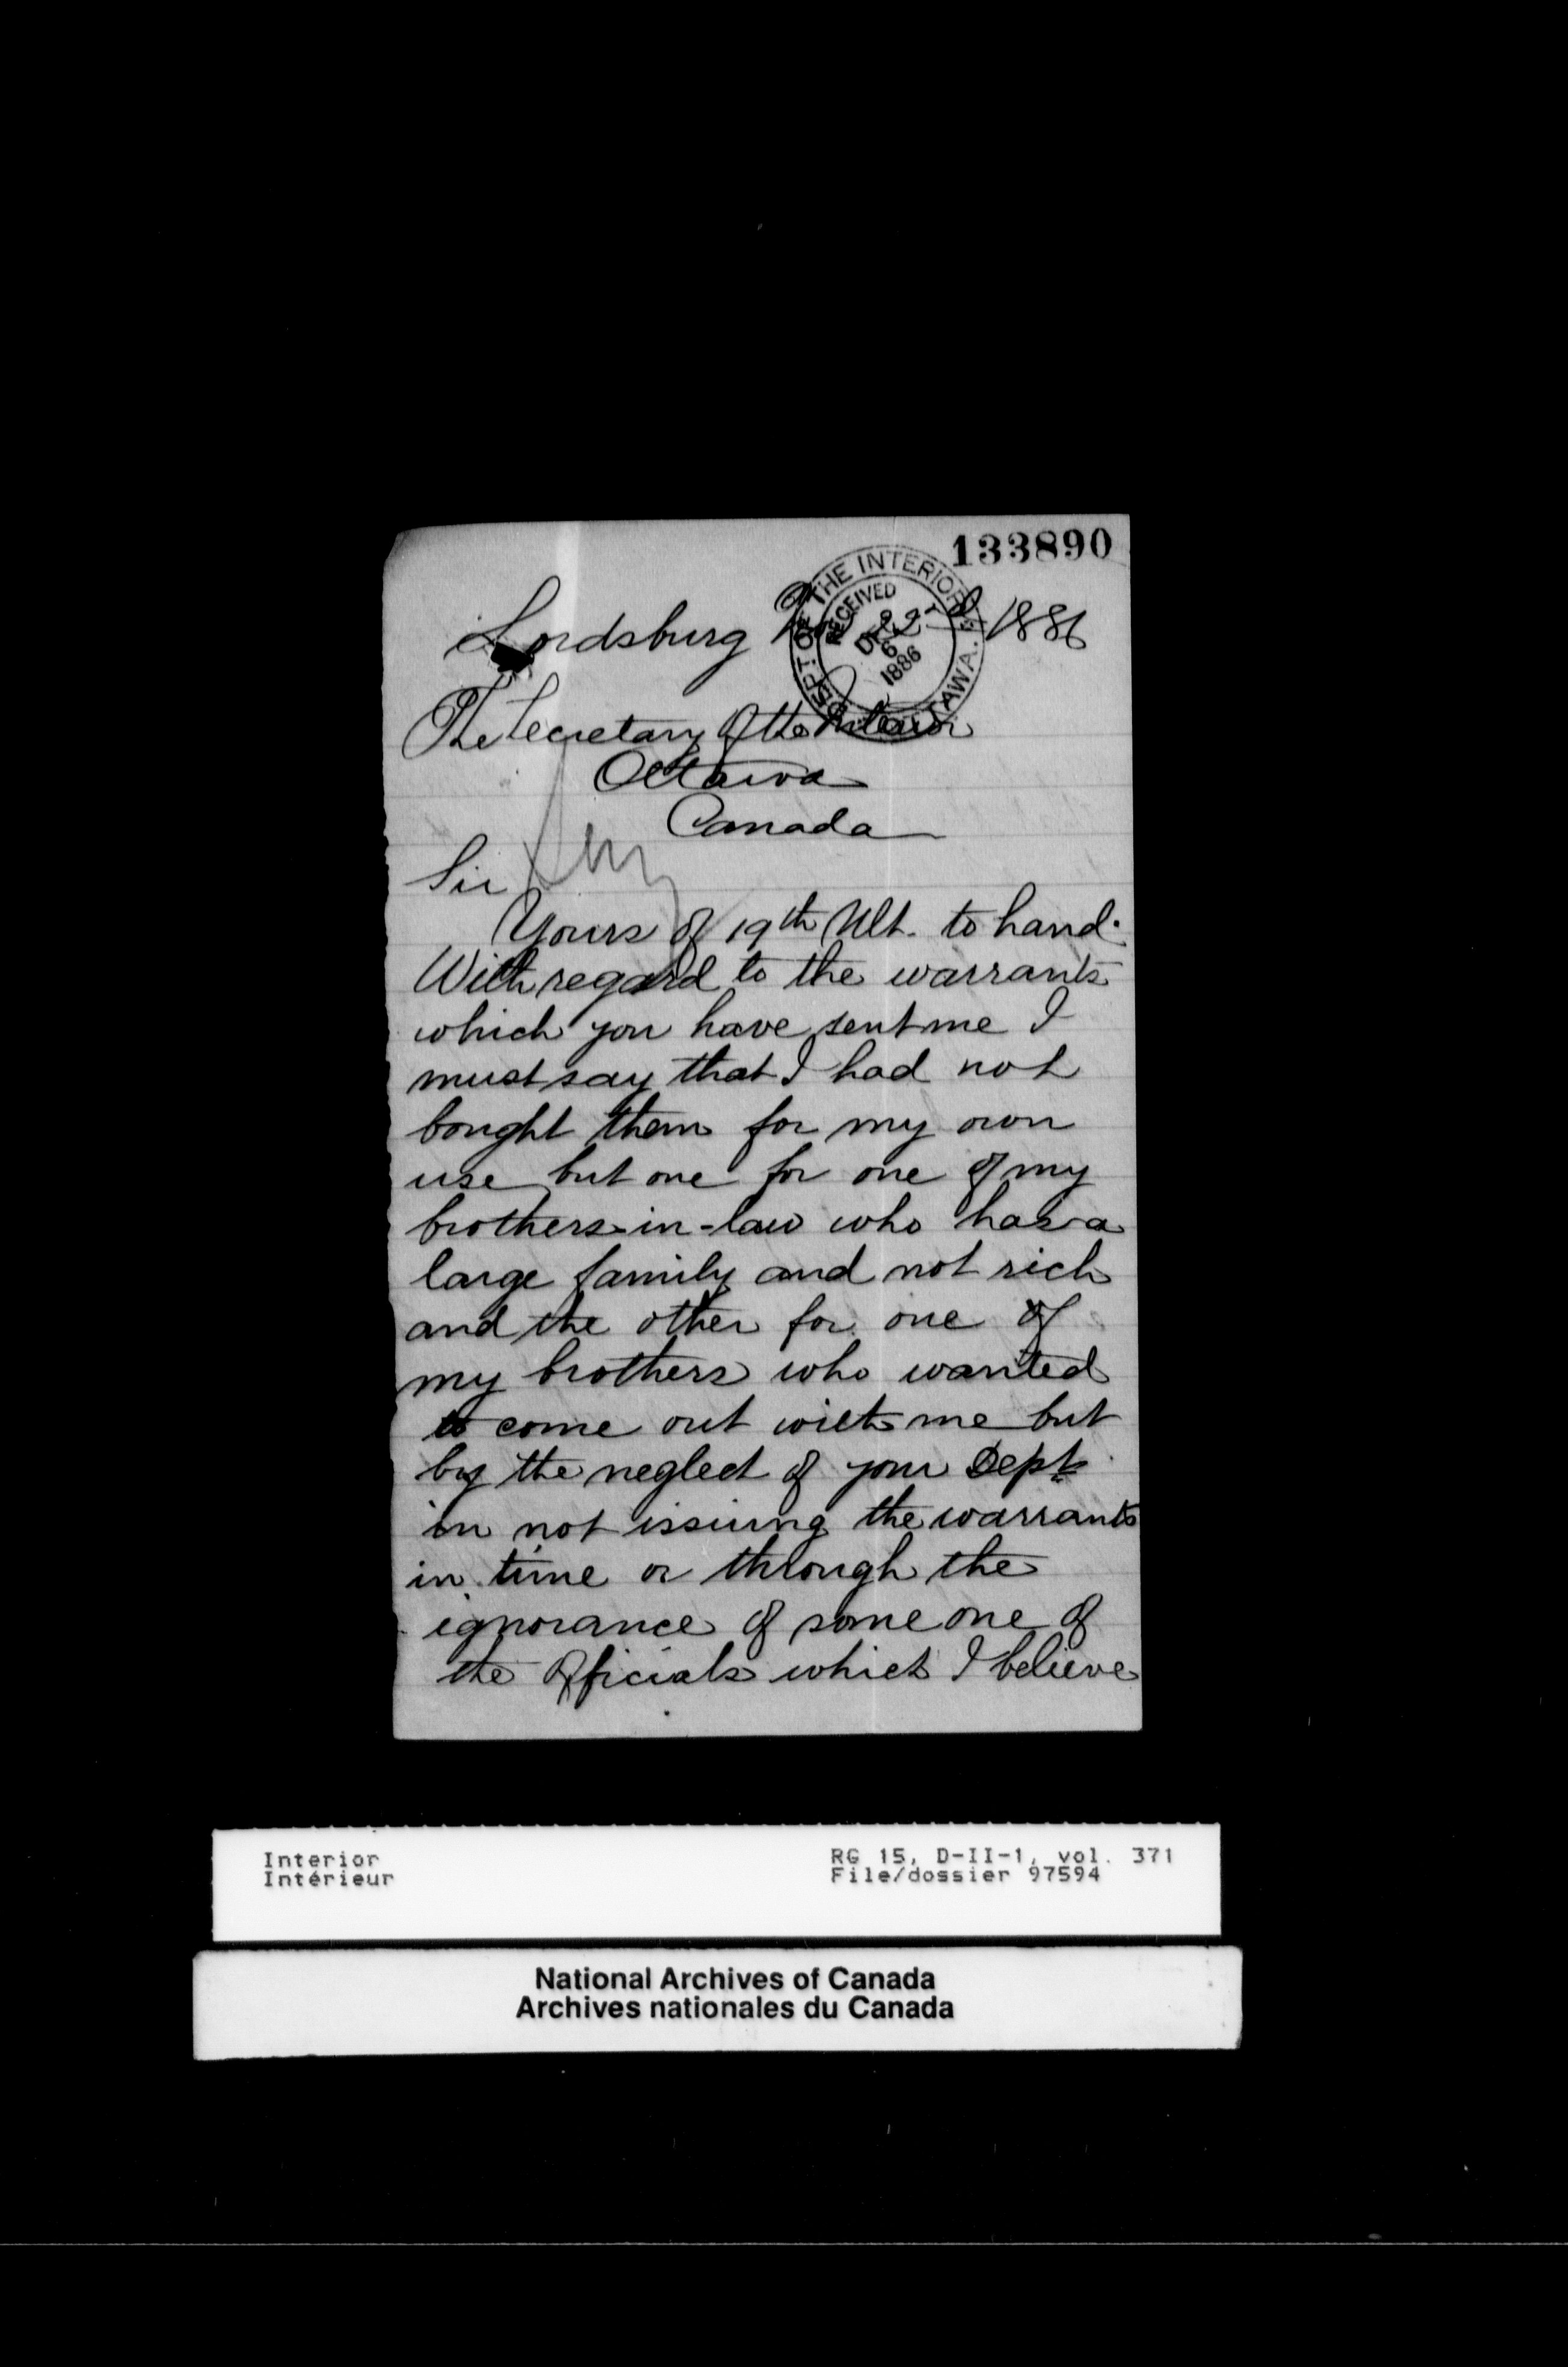 133890
Lordsburg 1886
DEPT. OF THE INTERIOR OTTAWA.
RECEIVED
DEC
6
1886
The Secretary of the Interior
Ottawa
Canada
Sir
Yours of 19th Ult. to hand.
With regard to the warrants
which you have sent me I
must say that I had not
bought them for my own
use but one for one of my
brothers-in-law who has a
large family and not rich
and the other for one of
my brothers who wanted
to come out with me but
by the neglect of your Dept.
in not issuing the warrants
in time or through the
ignorance of some one of
the Officials which I believe
Interior
Intérieur
RG 15, D-II-1, vol. 371
File/dossier 97594
National Archives of Canada
Archives nationales du Canada